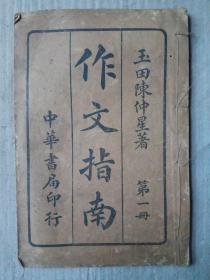 玉田陳仲星著　第一冊
作文指南
中華書局印行